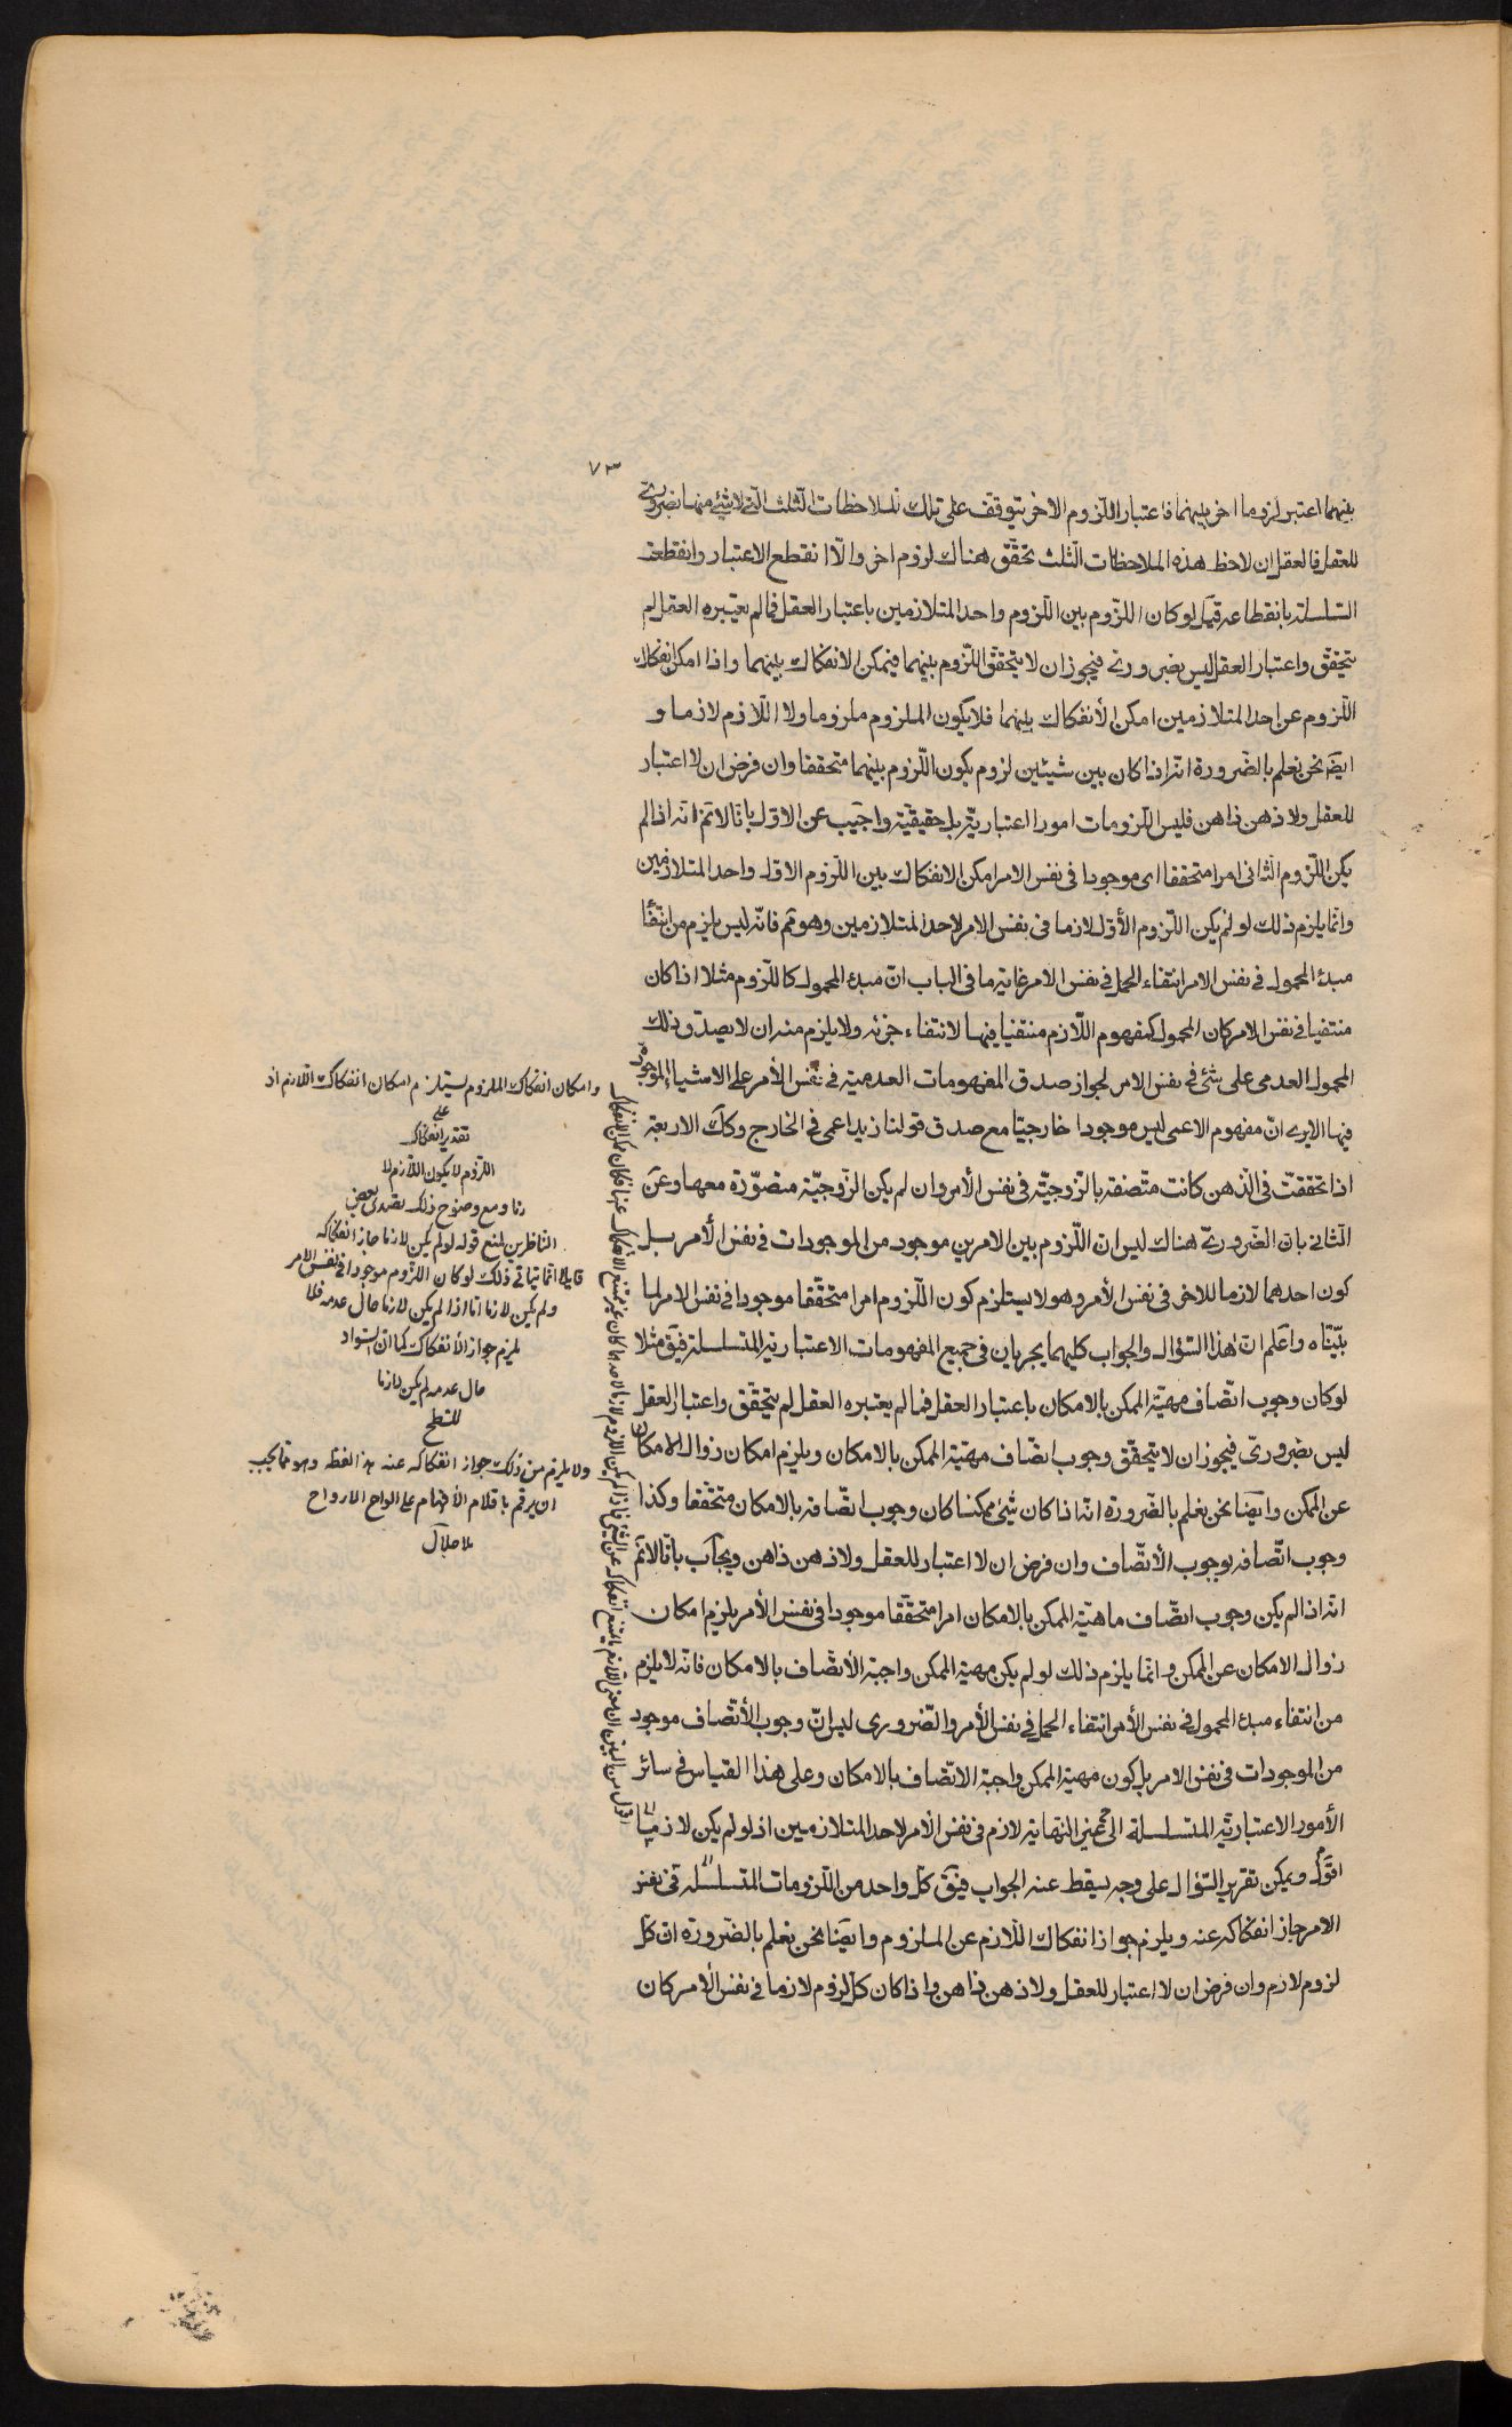 ٧٣
بينهما اعتبر لزوما اخر بينهما فاعتبار اللّزوم الاخر يتوقف على تلك الملاحظات الثّلث الّتى لا شئ منها بضرورىّ
للعقل فالعقل ان لاحظ هذه الملاحظات الثّلث تحقّق هناك لزوم اخر والّا انقطع الاعتبار وانقطعت
السّلسلة بانقطاعه قيل لو كان اللّزوم بين اللّزوم واحد المتلازمين باعتبار العقل فما لم يعتبره العقل لم
يتحقّق واعتبار العقل ليس بضرورىّ فيجوز ان لا يتحقّق اللّزوم بينهما فيمكن الانفكاك بينهما واذا امكن انفكاك
اللّزوم عن احد المتلازمين امكن الأنفكاك بينهما فلا يكون الملزوم ملزوما ولا اللّازم لازما و
ايضا نحن نعلم بالضّرورة انّه اذا كان بين شيئين لزوم يكون اللّزوم بينهما متحققا وان فرض ان لا اعتبار
للعقل ولا ذهن ذاهن فليس اللّزومات امورا اعتباريّة بل حقيقيّة واجيب عن الاوّل بانّا لا نم انّه اذا لم
يكن اللّزوم الثّانى امرا متحققا اى موجودا فى نفس الامر امكن الانفكاك بين اللّزوم الاوّل واحد المتلازمين
وانّما يلزم ذلك لو لم يكن اللّزوم الأوّل لازما فى نفس الامر لاحد المتلازمين وهو مم فانّه ليس يلزم من انتفا
مبدء المحمول فى نفس الامر انتفاء الحمل فى نفس الامر غاية ما فى الباب انّ مبدء المحمول كاللّزوم مثلا اذا كان
منتفيا فى نفس الامر كان المحمول كمفهوم اللّازم منتفيا فيها لانتفاء جزئه ولا يلزم منه ان لا يصدق ذلك
المحمول العدمى على شئ فى نفس الامر لجواز صدق المفهومات العدمية فى نفس الأمر على الاشياء الموجودة
فيها الا يرى انّ مفهوم الاعمى ليس موجودا خارجيّا مع صدق قولنا زيد اعمى فى الخارج وكك الاربعة
اذا تحققت فى الذّهن كانت متّصفة بالزّوجيّة فى نفس الأمر وان لم يكن الزّوجيّة متصوّرة معها وعن
الثّانى بان الضّرورىّ هناك ليس ان اللّزوم بين الامرين موجود من الموجودات فى نفس الأمر بل
كون احدهما لازما للاخر فى نفس الأمر وهو لا يستلزم كون اللّزوم امرا متحقّقا موجودا فى نفس الامر لما
بيّنّاه واعلم انّ هذا السّؤال والجواب كليهما يجريان فى جميع المفهومات الاعتبارية المتسلسلة فيق مثلا
لو كان وجوب اتّصاف مهيّة الممكن بالامكان باعتبار العقل فما لم يعتبره العقل لم يتحقّق واعتبار العقل
ليس بضرورىّ فيجوز ان لا يتحقّق وجوب اتّصاف مهيّة الممكن بالامكان ويلزم امكان زوال الامكان
عن الممكن وايضا نحن نعلم بالضّرورة انّه اذا كان شئ ممكنا كان وجوب اتّصافه بالامكان متحّققا وكذا
وجوب اتّصافه بوجوب الأتّصاف وان فرض ان لا اعتبار للعقل ولا ذهن ذاهن ويجاب بانّا لا نم
انّه اذا لم يكن وجوب اتّصاف ماهيّة الممكن بالامكان امرا متحقّقا موجودا فى نفس الأمر يلزم امكان
زوال الامكان عن الممكن وانّما يلزم ذلك لو لم يكن مهية الممكن واجبة الأتّصاف بالامكان فانّه لا يلزم
من انتفاء مبدء المحمول فى نفس الأمر انتفاء الحمل فى نفس الأمر والضّرورى ليس انّ وجوب الأتّصاف موجود
من الموجودات فى نفس الامر بل كون مهية الممكن واجبة الاتّصاف بالامكان وعلى هذا القياس فى سائر
الأمور الاعتباريّة المتسلسلة الى غير النّهاية لازم فى نفس الأمر لاحد المتلازمين اذ لو لم يكن لازما
اقول ويمكن تقرير السّؤال على وجه يسقط عنه الجواب فيق كلّ واحد من اللّزومات المتسلسلة فى نفس
الامر جاز انفكاكه عنه ويلزم جواز انفكاك اللّازم عن الملزوم وايضا نحن نعلم بالضّرورة ان كلّ
لزوم لازم وان فرض ان لا اعتبار للعقل ولا ذهن ذاهن واذا كان كلّ لزوم لازما فى نفس الأمر كان
وامكان انفكاك الملزوم يستلزم امكان انفكاك اللازم اذ
على
تقدير انفكاك
اللزوم لا يكون اللازم لا
زما ومع وضوح ذلك تصدى بعض
النّاظرين لمنع قوله لو لم يكن لازما جاز انفكاكه
قايلا انّما يتاتى ذلك لو كان اللزوم موجودا فى نفس الامر
ولم يكن لازما امّا اذا لم يكن لازما حال عدمه فلا
يلزم جواز الأنفكاك كما ان السواد
حال عدمه لم يكن لازما
للسطح
ولا يلزم من ذلك جواز انفكاكه عنه هذا لفظه وهو مما يجب
ان يرقم باقلام الأفهام على الواح الارواح